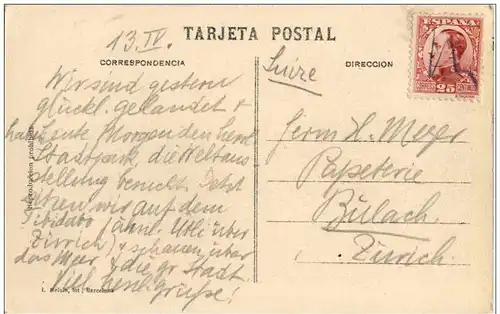 TARJETA POSTAL
13. IV.
CORRESPONDENCIA
DIRECCION
ESPAÑA
25
Suize
Wir sind gestern
glückl. gelandet &
haben heute Morgen den herrl.
Stadtpark, die Weltaus
stellung besucht. Jetzt
sitzen wir auf dem
Tibidabo (ähnl. Utli über
Zürich) & schauen über
das Meer & die gr. Stadt.
Viel herzl. Grüße!
Herrn H. Meyer
Papeterie
Bülach.
Zürich.
Reproduccion prohibida
L. Roisin, fot., Barcelona